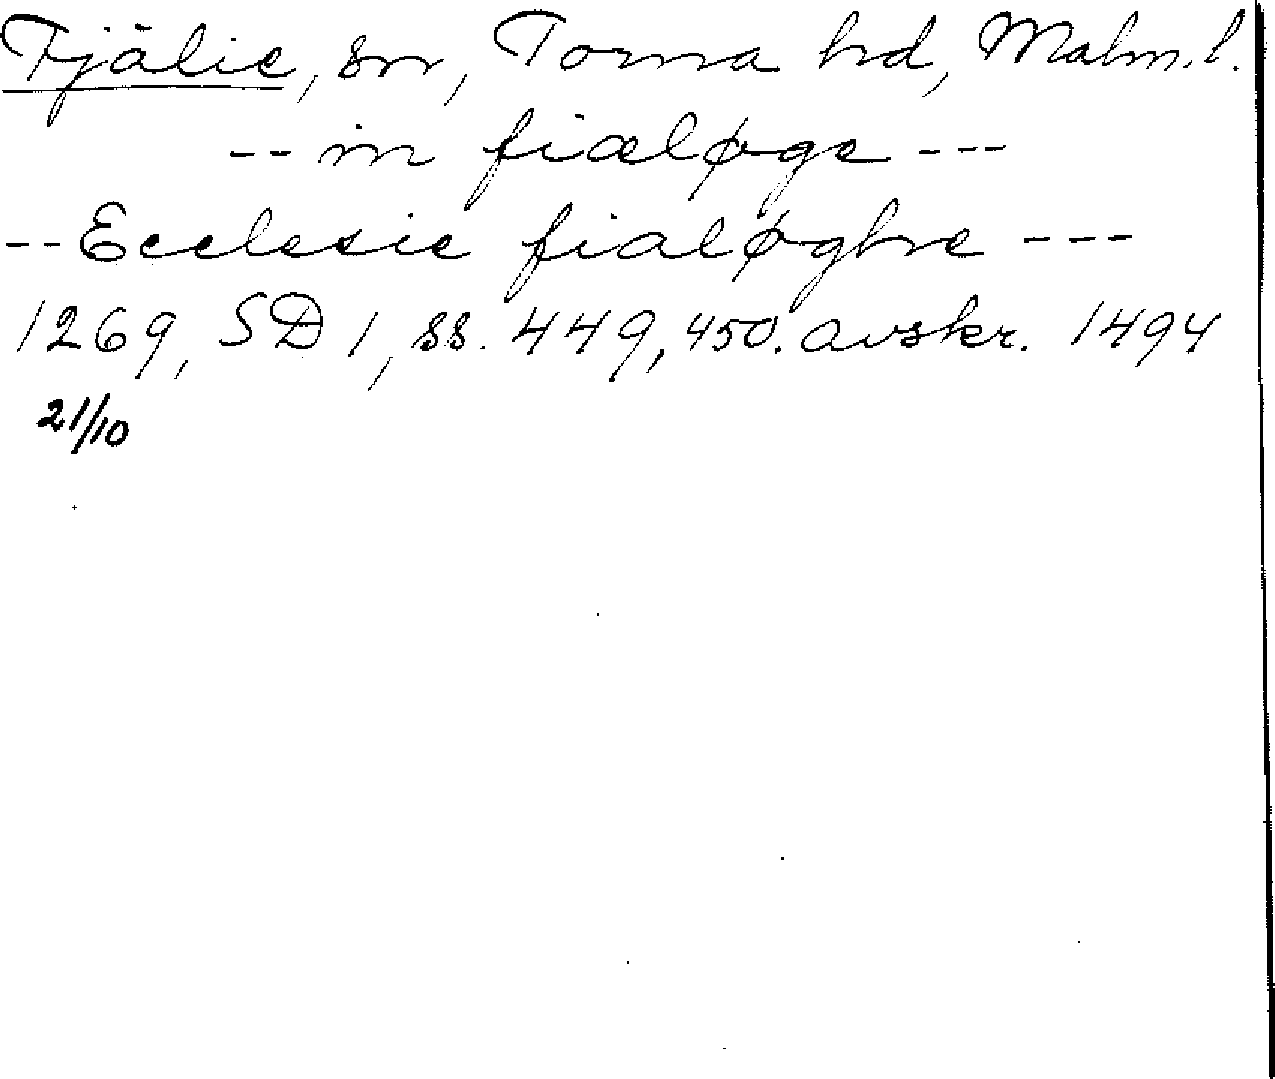 Fjälie, sn, Torna hd, Malm. l.
-- in fiæløge ---
-- Ecclesie fialøghe ---
1269, SD 1, ss. 449, 450. avskr. 1494
21/10